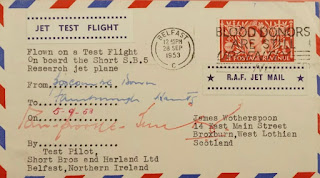 JET TEST FLIGHT
Flown on a Test Flight
On board the Short S.B.5
Research jet plane
From Boscombe Down
To Farnborough Hants
On 5.9.53
By
Test Pilot,
Short Bros and Harland Ltd
Belfast, Northern Ireland
BELFAST
12 15 PM
28 SEP
1953
C
BLOOD DONORS
ARE STILL
POSTAGE REVENUE
R.A.F. JET MAIL
James Wotherspoon
14 East Main Street
Broxburn, West Lothian
Scotland